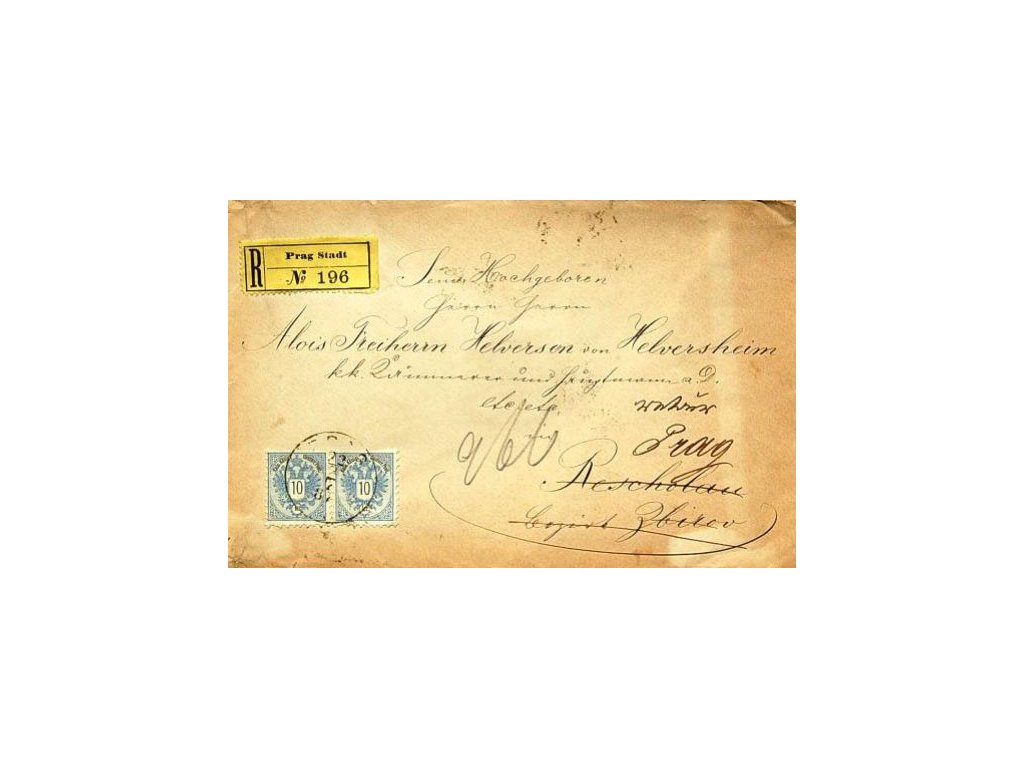 R
Prag Stadt
№ 196
Seiner Hochgeboren
Herrn Herrn
Alois Freiherrn Helversen von Helversheim
k.k. Kämmerer und Hauptmann a. D.
etc etc.
retour
in
Prag
Rescholau
Bezirk Zbirov
10 10